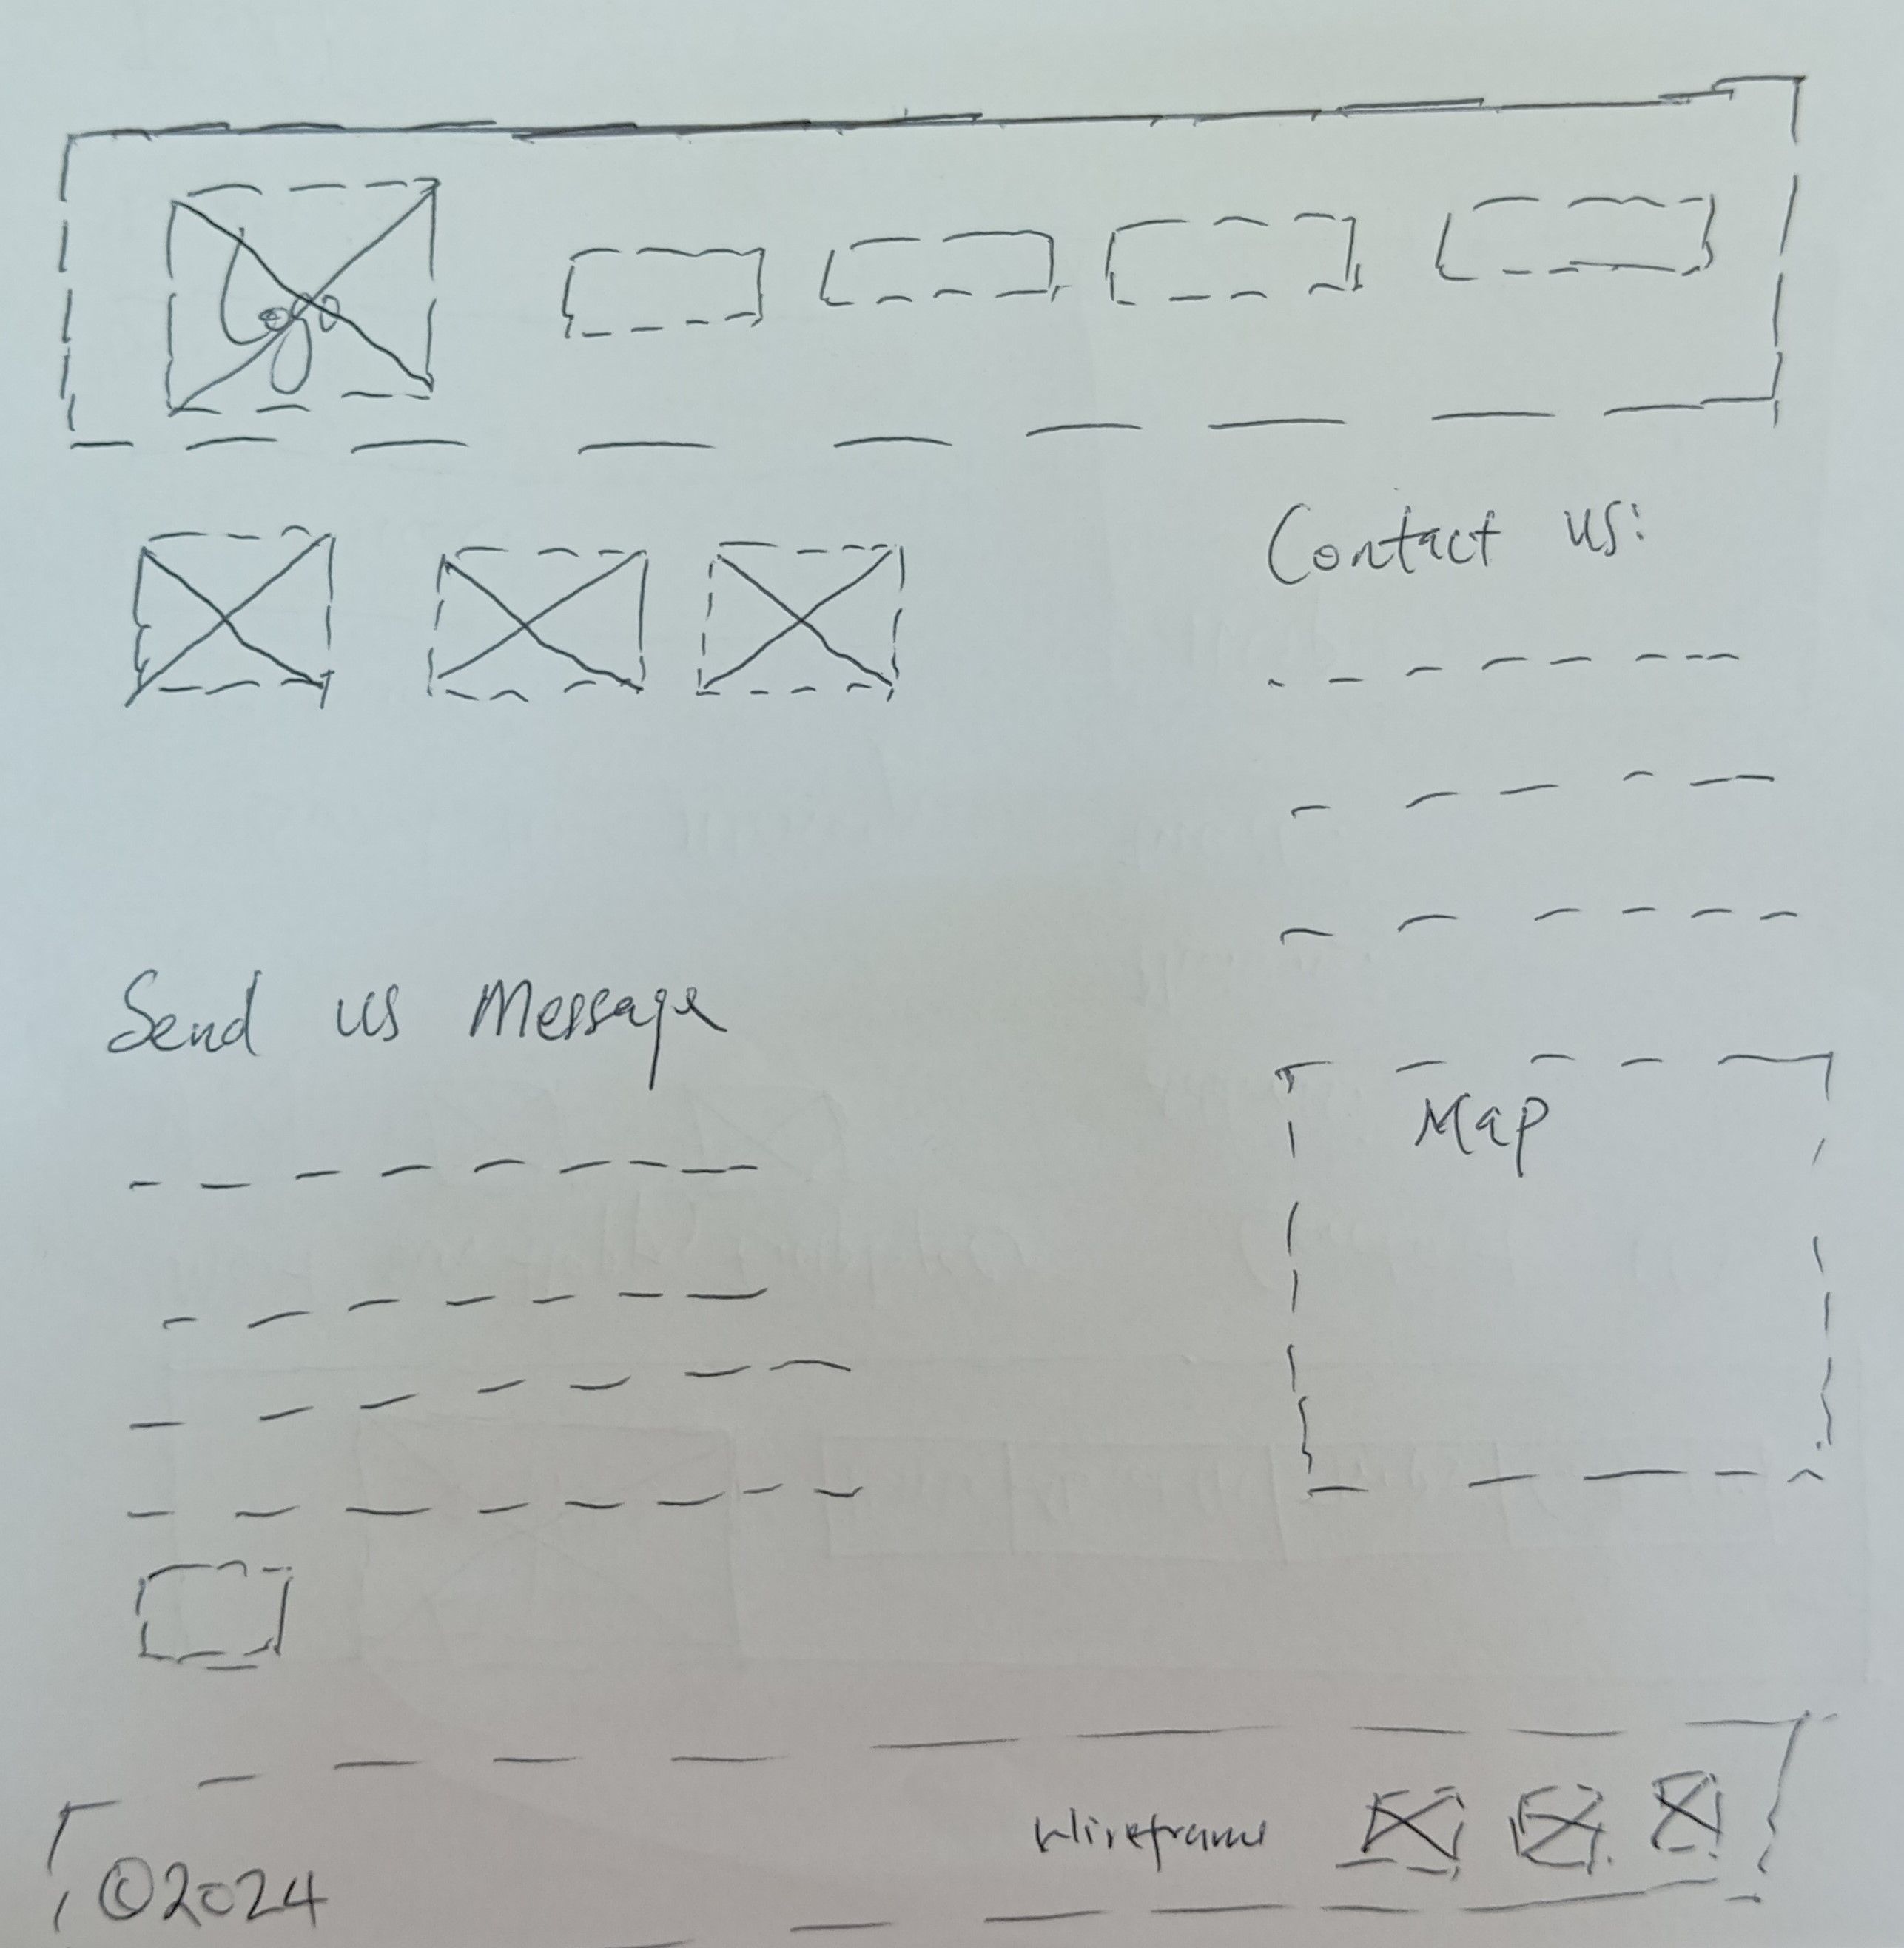 Logo
Contact us:
Send us Message
Map
Wireframe
©2024